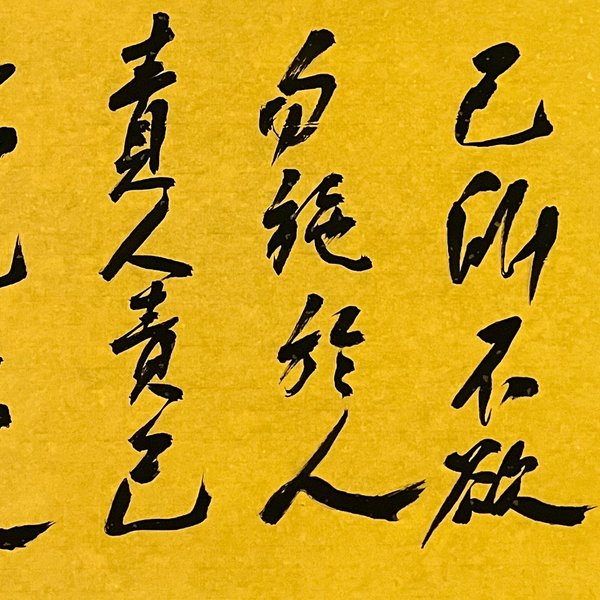 己所不欲
勿施於人
責人責己